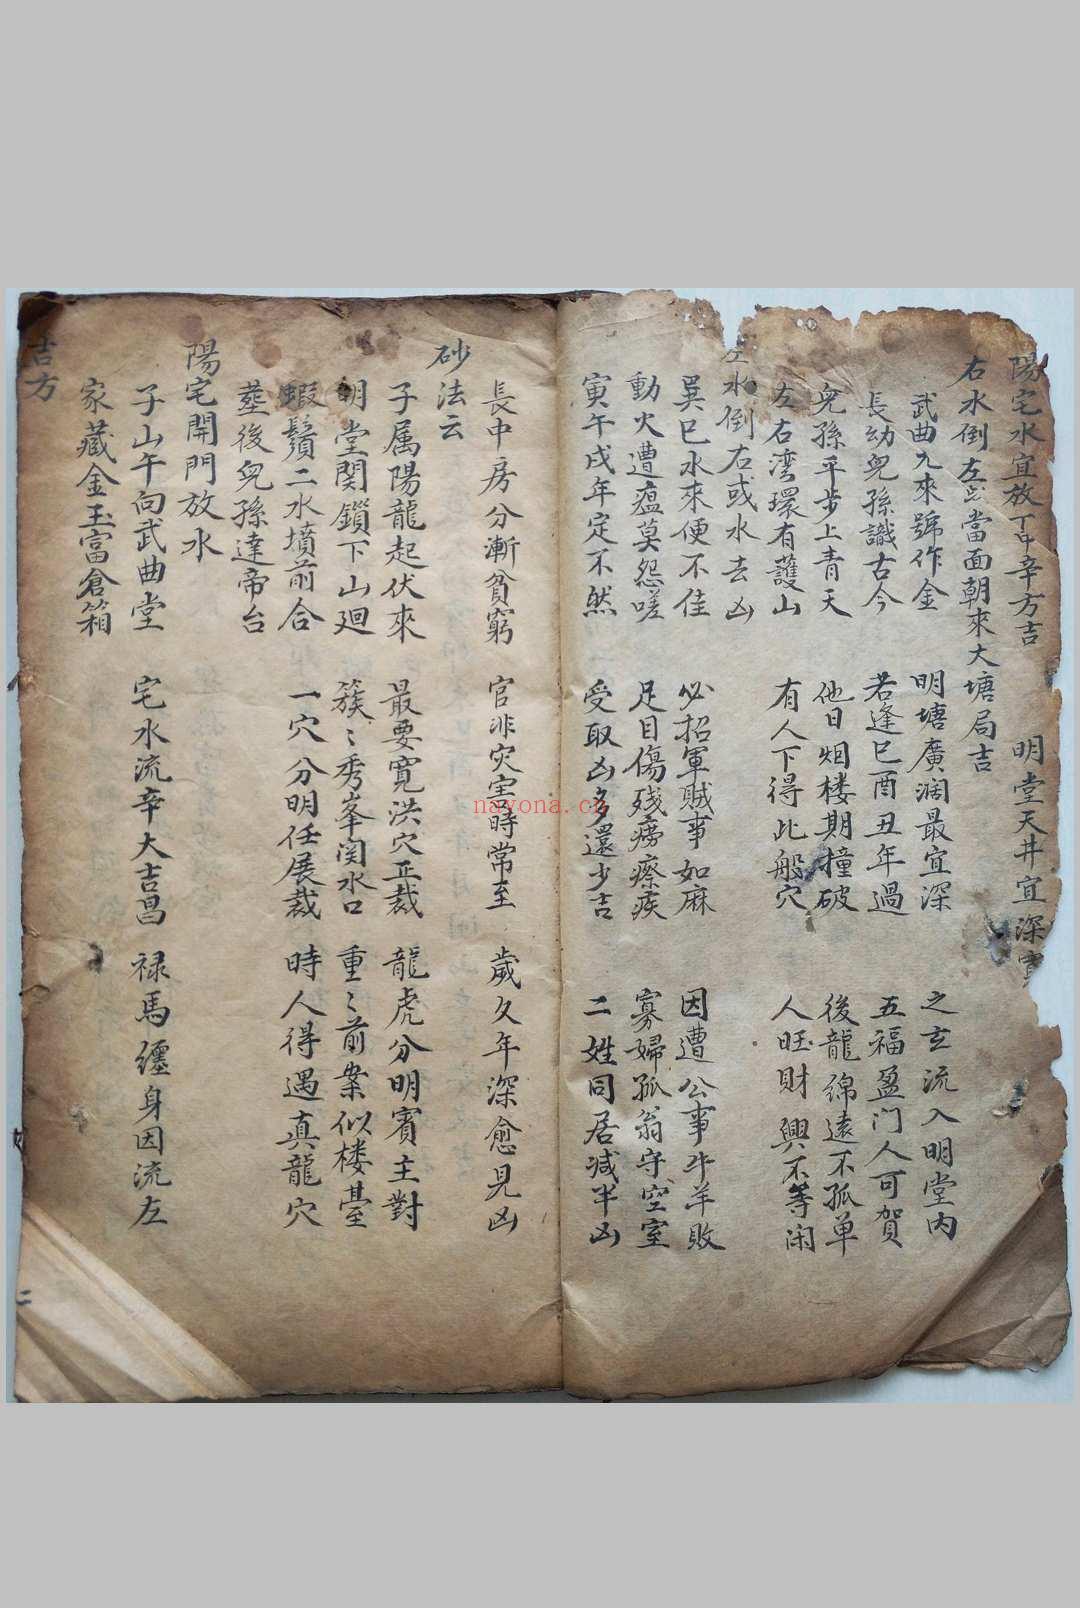 陽宅水宜放丁甲辛方吉　明堂天井宜深
右水倒左 當面朝來大塘局吉
武曲九來號作金　明塘廣濶最宜深　之玄流入明堂內
長幼兒孫識古今　若逢巳酉丑年過　五福盈门人可賀
兒孫平步上青天　他日烟楼期撞破　後龍綿遠不孤单
左右湾環有護山　有人下得此般穴　人旺財興不等闲
水倒右或水去凶
巽巳水來便不佳　必招軍贼事如麻　因遭公事牛羊敗
動火遭瘟莫怨嗟　足目傷殘痨瘵疾　寡婦孤翁守空室
寅午戌年定不然　受取凶多還少吉　二姓同居减半凶
長中房分漸貧窮　官非灾室時常至　歲久年深愈見凶
砂法云
子属陽龍起伏來　最要寬洪穴正裁　龍虎分明賓主對
明堂関鎖下山廻　簇〻秀峯関水口　重〻前案似楼臺
蝦鬚二水墳前合　一穴分明任展裁　時人得遇真龍穴
塟後兒孫達帝台
陽宅開門放水
子山午向武曲堂　宅水流辛大吉昌　禄馬纏身因流左
家藏金玉富倉箱
吉方
二
nayona.cn